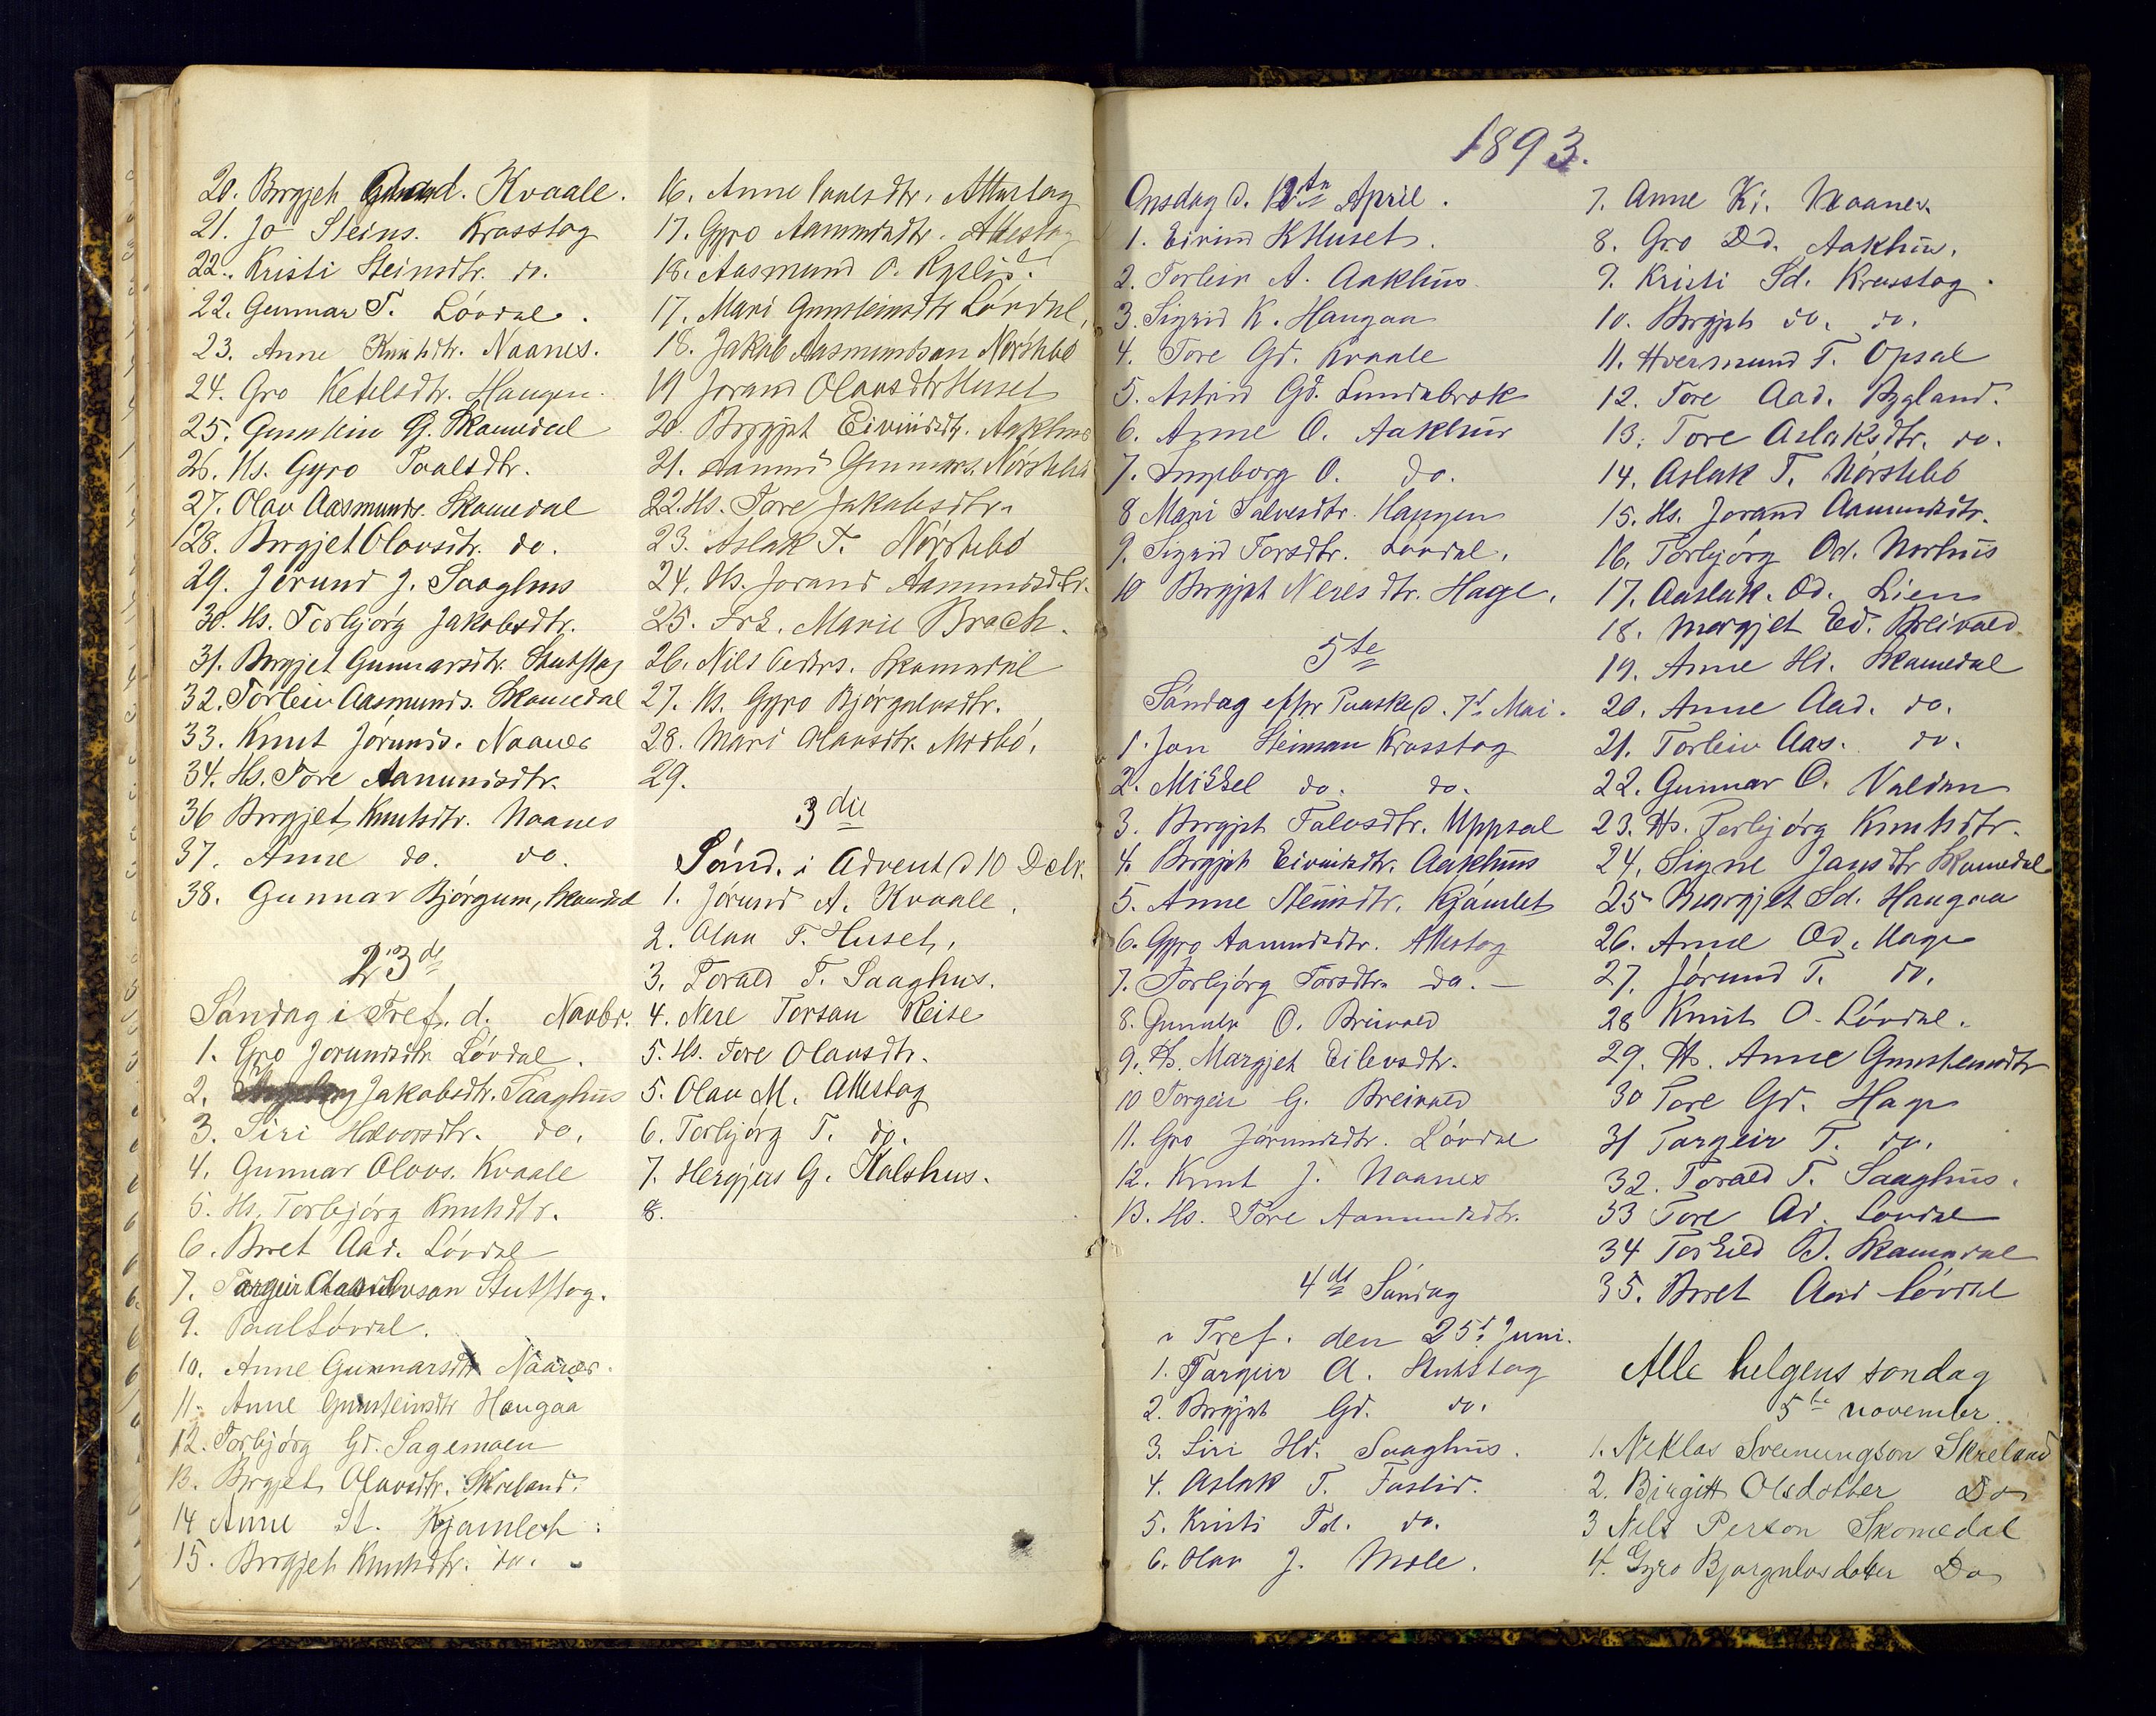 20. Brgjeh Gunnd. Kvaale.
21. Jo Steins. Krosstog
22. Kristi Steinsdtr. do.
22. Gunnar T. Lövdal.
23. Anne Knutsdtr. Naanes.
24. Gro Ketelsdtr. Haugen.
25. Gunstein G. Skomedal
26. Hs. Gyro Paalsdtr.
27. Olav Aasmunds. Skomedal
28. Brgjet Olavsdtr. do.
29. Jörund J. Saaghus
30. Hs. Torbjörg Jakobsdtr.
31. Brgjet Gunnarsdtr. Stutstog
32. Torleiv Aasmunds. Skomedal
33. Knut Jörunds. Naanes
34. Hs. Tore Aamundsdtr.
36 Brgjet Knutsdtr. Naanes
37. Anne do. do.
38. Gunnar Björgum, Skomedal
23de
Söndag i Tref. d. Novbr.
1. Gro Jorundsdtr Lövdal.
2. Jakobsdtr. Saaghus
3. Siri Halvorsdtr. do.
4. Gunnar Olavs. Kvaale
5. Hs. Torbjörg Knutsdtr.
6. Brret Aad. Lövdal
7. Targeir Stutstog.
9. Paal Lövdal.
10. Anne Gunnarsdtr Naanes.
11. Anne Gunsteinsdtr Haugaa
12. Torbjörg Gd. Sagemoen
13. Brgjet Olavsdtr. Skreland.
14 Anne St. Kjamlet
15. Brgjeh Knutsdtr. do.
16. Anne Paalsdtr. Attestog
17. Gyro Aamundsdtr. Attestog
18. Aasmund O. Ryslid.
17. Mari Gunsteinsdtr Lövdal,
18. Jakob Aasmundson Nörstebö
19 Jorand Olavsdtr Huset
20. Brgjet Eivindsdtr. Aakhus
21. Aamund Gunnars. Nörstebö
22. Hs. Tore Jakobsdtr.
23. Aslak T. Nörstebö
24. Hs. Jorand Aamundsdtr.
25. Frk. Marie Broch.
26. Nils Peders. Skomedal
27. Hs. Gyro Björgulvsdtr.
28. Mari Olavsdtr. Moebö.
29.
3die
Sönd. i Advent d 10 Debr.
1. Jörund A. Kvaale.
2. Olav T. Huset,
3. Torald T. Saaghus.
4. Nere Torsan Reise
5. Hs. Tore Olavsdtr.
5. Olav M. Attestog
6. Torbjörg T. do.
7. Hergjus G. Kalshus.
8.
1893.
Onsdag d. 12te April.
1. Eivind K Huset.
2. Torleiv A. Aakhus
3. Sigrid K. Haugaa
4. Tore Gd. Kvaale
5. Astrid Gd. Lundebrok
6. Anne O. Aakhus
7. Ingeborg O. do.
8 Mari Talvesdtr. Haugen
9. Sigrid Torsdtr. Lövdal.
10 Brgjet Neresdtr. Hage.
5te
Söndag efter Paaske d. 7de Mai.
1. Jon Steinson Krosstog
2. Mikkel do. do.
3. Brgjet Talvsdtr. Uppsal
4. Brgjet Eivindsdtr. Aakhus
5. Anne Steinsdtr. Kjámlet
6. Gyro Aamundsdtr. Attestog
7. Torbjörg Torsdtr. do. -
8. Gunnulv O. Breivold
9. Hs. Margjet Eilevsdtr.
10 Torgeir G. Breivold
11. Gro Jörundsdtr. Lövdal
12. Knut J. Naanes
13. Hs. Tore Aamundsdtr.
4de Söndag
i Tref. den 25de Juni.
1. Targeir A. Stutstog
2. Brgjet Gd. do.
3. Siri Hd. Saaghus.
4. Aslak T. Tuslid.
5. Kristi Td. do.
6. Olav J. Mole.
7. Anne Kd. Naanes.
8. Gro Dd. Aakhus.
9. Kristi Sd. Krosstog.
10. Brgjet do. do.
11. Hversmund T. Opsal
12. Tore Aad. Bygland.
13. Tore Aslaksdtr. do.
14. Aslak T. Nörstebö
15. Hs. Jorand Aamundsdtr.
16. Torbjörg Od. Norhus
17. Aaslak. Od. Lien
18. Margjet Ed. Breivold
19. Anne Hd. Skomedal
20. Anne Aad. do.
21. Torleiv Aas. do.
22. Gunnar O. Valdem
23. Hs. Torbjörg Knutsdtr.
24. Signe Jansdtr Skomedal
25 Margjet Sd. Haugaa
26. Anne Od. Hage
27. Jörund T. do.
28 Knut O. Lövdal.
29. Hs. Anne Gunsteinsdtr
30 Tore Gd. Hage
31 Targeir T. do.
32. Torald T. Saaghus.
33 Tore Ad. Lövdal
34 Torkild B. Skomedal
35. Brret Aad Lövdal
Alle helgens sondag
5te november.
1. Neklas Sveinungson Skreland
2. Birgitt Olsdotter Do
3 Nels Person Skomedal
4. Gyro Bjorgulvsdotter Do